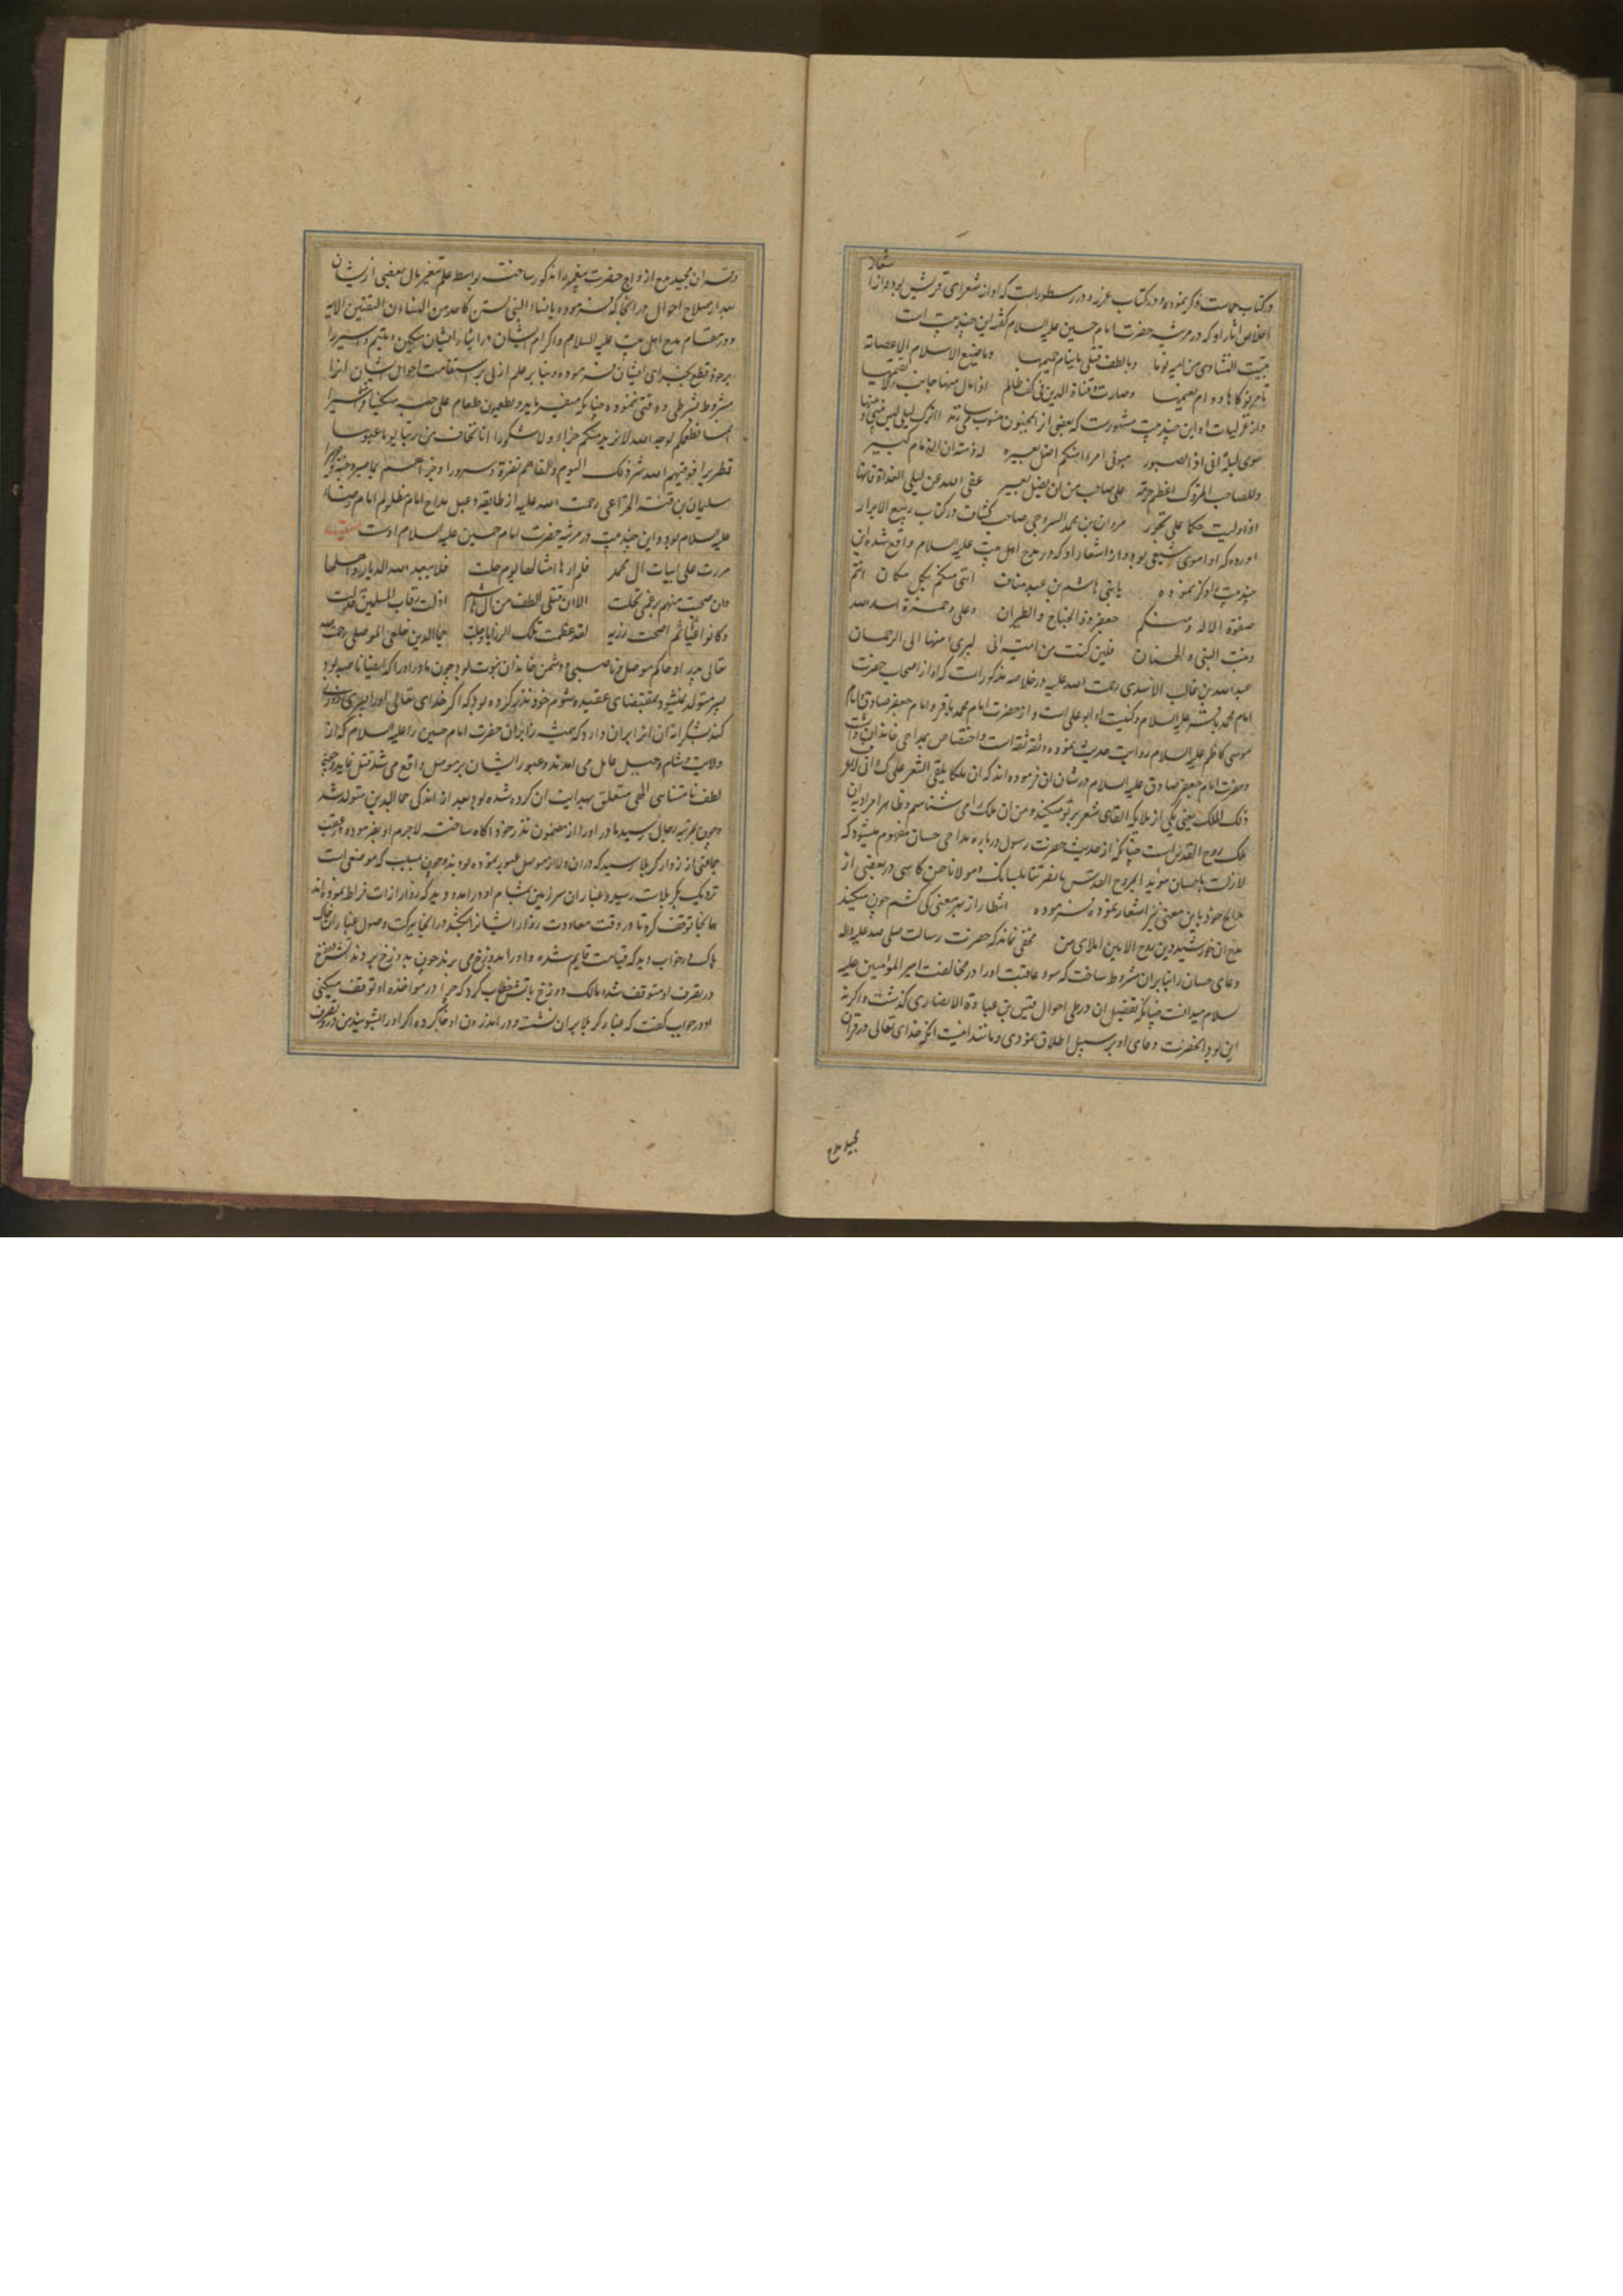 شعار
در کتاب حماست ذکر نموده و در کتاب غرر و درر مسطور است که او از شعرای قریش بود و از ا
اخلاص اثار او که در مرثیه حضرت امام حسین علیه السلام گفته این چند بیت است
من امیه نوما وبالطف قتلی ماینام حمیمها وما ضیع الاسلام الا عصابة
تامر نوکاها ودام نعیمها وصارت قناة الدین فی کف ظالم اذا مال منها جانب لا یقیمها
واز غزلیات او این چند بیت مشهورست که بعضی از
سوی لیلة انی اذا لصبور هبونی امرا منکم اضل بعیره له ذمة ان الذمام کبیر
وللصاحب المتروک اعظم حرمة علی صاحب من ان یضل بعیر عفی الله عن لیلی الغداة فانها
اذا ولیت حکما علی تجور مروان بن محمد السروجی صاحب کشاف در کتاب ربیع الابرار
اورده که او اموی شیعی بود و از اشعار او که در مدح اهل بیت علیه السلام واقع شده این
چند بیت را ذکر نموده یا بنی هاشم بن عبد مناف اننی منکم بکل مکان انتم
صفوة الاله ومنکم جعفر ذو الجناح والطیران وعلی وحمزة اسد الله
وبنت النبی والحسنان فلین کنت من امیة انی لبری منها الی الرحمان
عبد الله بن غالب الاسدی رحمت الله علیه در خلاصه مذکور است که او از اصحاب حضرت
امام محمد باقر علیه السلام و کنیت او ابو علی است و از حضرت امام محمد باقر و امام جعفر صادق و امام
موسی کاظم علیه السلام روایت حدیث نموده و ثقه ثقه است و اختصاص بمداحی خاندان داشت
وحضرت امام جعفر صادق علیه السلام در شان ان فرموده اند که ان ملکا یلقی الشعر علیک وانی لاعرف
ذلک الملک یعنی یکی از ملایکه القای شعر بر تو میکند و من ان ملک را می شناسم و ظاهرا مراد به ان
ملک روح القدس است چنانکه از حدیث حضرت رسول درباره مداحی حسان مفهوم میشود که
لازلت یا حسان موید ا بروح القدس ما نصرتنا بلسانک ومولانا حسن کاسی در بعضی از
مدایح خود باین معنی نیز اشعار نموده فرموده
مدح ان خورشید دین روح الامین املای من مخفی نماند که حضرت رسالت صلی الله علیه واله
دعای حسان را بنا بران مشروط ساخت که سوء عاقبت او را در مخالفت امیر المومنین علیه
سلام میدانست چنانکه تفضیل ان در طی احوال قیس بن عبادة الانصاری گذشت و اگر نه
این بود انحضرت دعای او بر سبیل اطلاق نمودی و مانند اینست انکه خدای تعالی در قران
مجید مدح
در قران مجید مدح ازواج حضرت پیغمبر را مذکور ساخت بواسطه علم بتغیر مال بعضی از ایشان
بعد از صلاح احوال در انجا که فرموده یا نساء النبی لستن کاحد من النساء ان اتقیتن الایه
و در مقام مدح اهل بیت علیه السلام و اکرام ایشان در اثناء ایشان مسکین و یتیم و اسیر را
بر خود قطع بجزای ایشان فرموده و بنا بر علم ازلی بر استقامت احوال ایشان انرا
مشروط بشرطی و وقتی ننموده چنانکه میفرماید و یطعمون الطعام علی حبه مسکینا و
انما نطعمکم لوجه الله لا نرید منکم جزاء ولا شکورا انا نخاف من ربنا یوما عبوسا
قمطریرا فوقیهم الله شر ذلک الیوم ولقاهم نضرة وسرورا وجزاهم بما صبروا جنة وحریرا
سلیمان بن قتته الخزاعی رحمت الله علیه از طایفه دعبل مداح امام مظلوم امام رضاء
علیه السلام بود و این چند بیت در مرثیه حضرت امام حسین علیه السلام اوست
مررت علی ابیات ال محمد فلم ارها امثالها یوم حلت فلا یبعد الله الدیار واهلها
وان صحبت منهم برغمی تخلت الا ان قتلی الطف من ال هاشم اذلت رقاب المسلمین فذلت
وکانوا غیاثا ثم اضحت رزیه لقد عظمت تلک الرزایا وجلت جمالدین خلعی الموصلی رحمت الله
خالی پدر او حاکم موصل و ناصبی و دشمن خاندان نبوت بود چون مادر او را که ایضا ناصبیه بود
پسر متولد نمیشود بمقتضای عقیده شوم خود نذر کرده بود که اگر خدای تعالی او را پسری روزی
کند بشکرانه ان او را بران دارد که همیشه زایران حضرت امام حسین را علیه السلام که از
ولایت شام و جبل عامل می امدند و عبور ایشان بر موصل واقع می شد قتل نماید
لطف نامتناهی الهی متعلق بهدایت ان کرده شده بود بعد از اندکی جمالدین متولد شد
و چون بمرتبه رجال رسید مادر او را از مضمون نذر خود اکاه ساخت لاجرم او بفرموده و بعقب
جماعتی از زوار کربلا رسید که در ان ولا از موصل عبور نموده بودند و چون بمسیب که موضعی است
نزدیک بکربلا رسید و غبار ان سرزمین بمشام او درامد و دید که زوار از فرات نموده اند
همانجا توقف کرد تا در وقت معاودت زوار ایشانرا بکشد در انجا ببرکت وصول غبار ان خاک
پاک در خواب دید که قیامت قایم شده و او را بدوزخ می برند چون بدوزخ بردند اتش دوزخ
در تصرف او متوقف شده مالک دوزخ با اتش خطاب کرد که چرا در مواخذه او توقف میکنی
او در جواب گفت که غبار کربلا بر ان نشسته و در امدن او خاک کرده اگر او را بشویند من در و تصرف